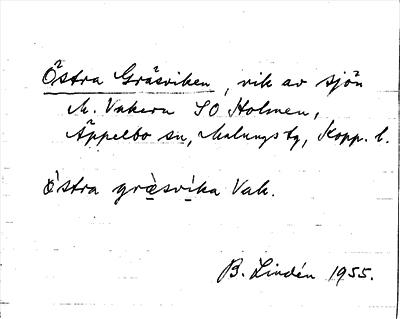 Östra Gräsviken, vik av sjön
M. Vakern SO Holmen,
Äppelbo sn, Malungs tg, Kopp. l.
östra græsvika Vak.
B. Lindén 1955.